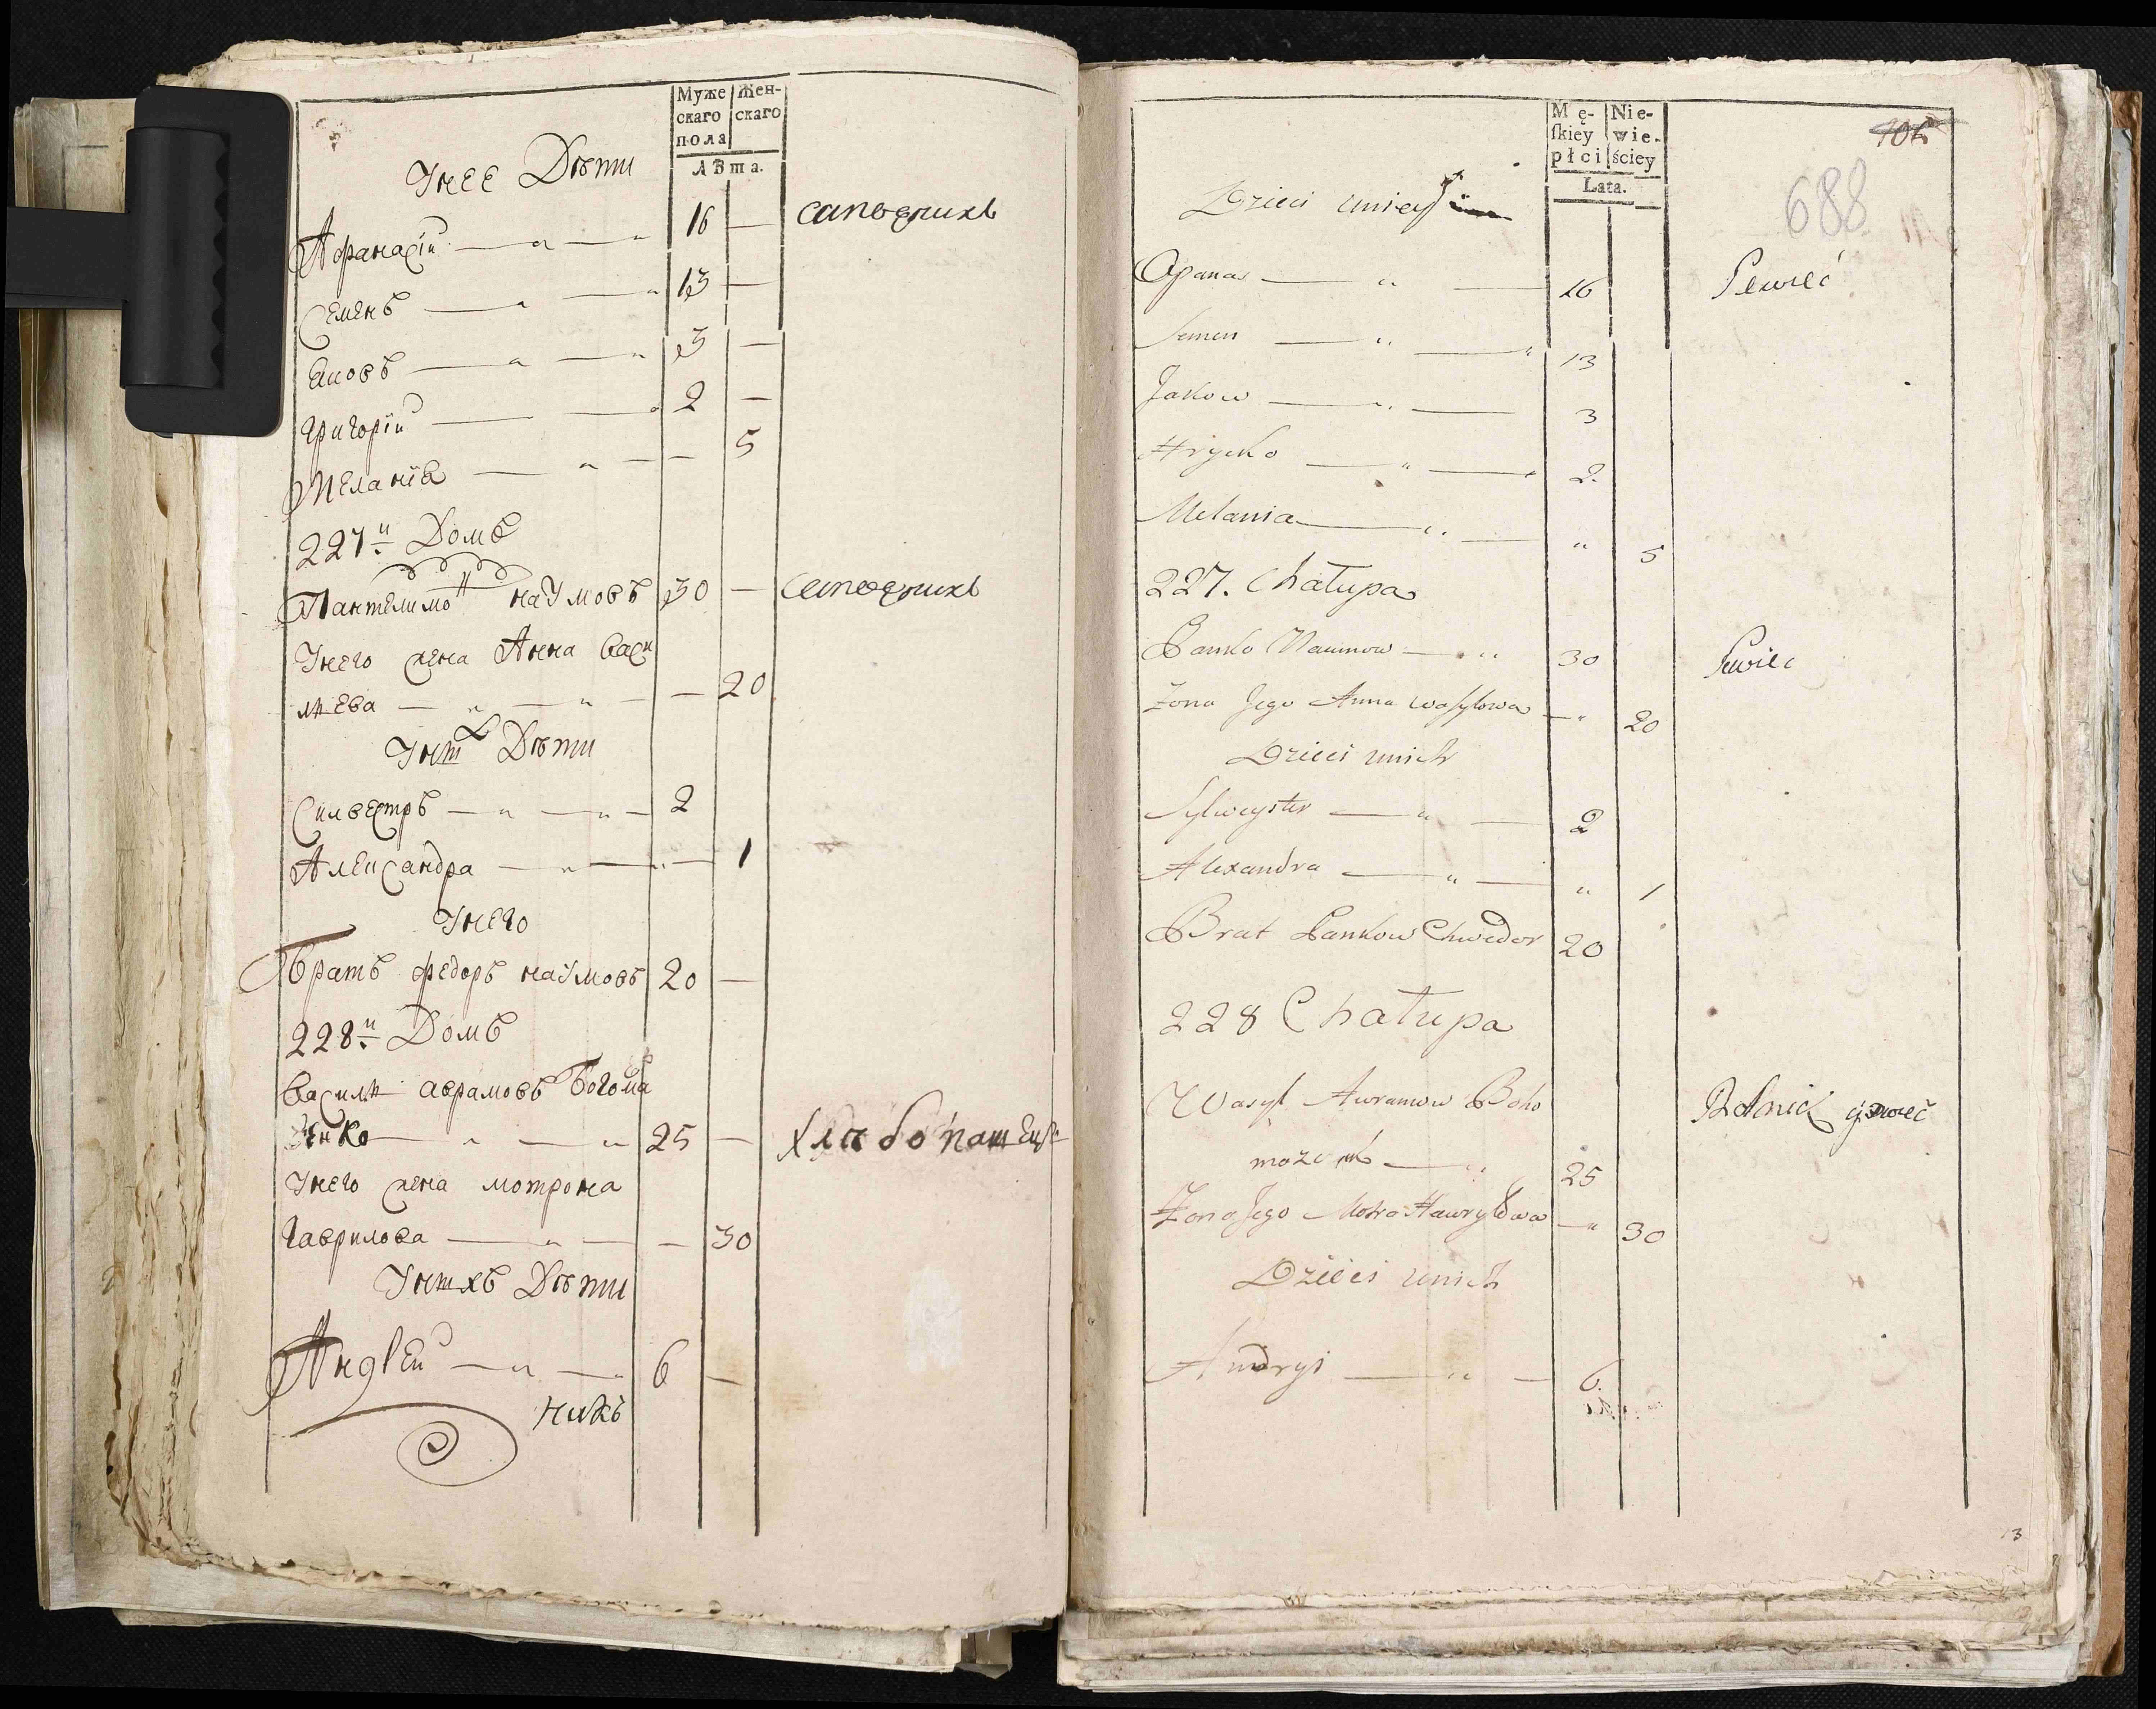 Муже Жен-
скаго скаго
пола
лѣта.
Унее Дѣти
Афанасій 16 — сапожникъ
Семенъ 13 —
Яковъ 3 —
Григорій 2 —
Меланія — 5
227й Домъ
Пантелимон Наумовъ 30 — сапожникъ
Унего жена Анна Васи
льева — 20
Унихъ Дѣти
Силвестръ 2
Александра — 1
Унего
Братъ Федоръ Наумовъ 20 —
228й Домъ
Василь Аврамовъ Богома
25 — хлѣбопашец
Унего жена Мотрона
Гаврилова — 30
Унихъ Дѣти
Андрей 6 —
никъ
Mę- Nie-
skiey wie-
płci ściey
Lata.
106
688
Dzieci uniey
Opanas " 16 Szewć
Semen " 13
Jakow " 3
Hryćko " 2.
Melania " " 5
227. Chałupa
Panko Naumow " 30 Szewc
Żona Jego Anna Wasylowa " 20
Dzieci unich
Sylwester " 2
Alexandra " " 1
Brat Pankow Chwedor 20
228 Chałupa
Wasyl Awramow Boho
25
Żona Jego Motra Hawryłowa " 30
Dzieci unich
Andryi " 6.
13